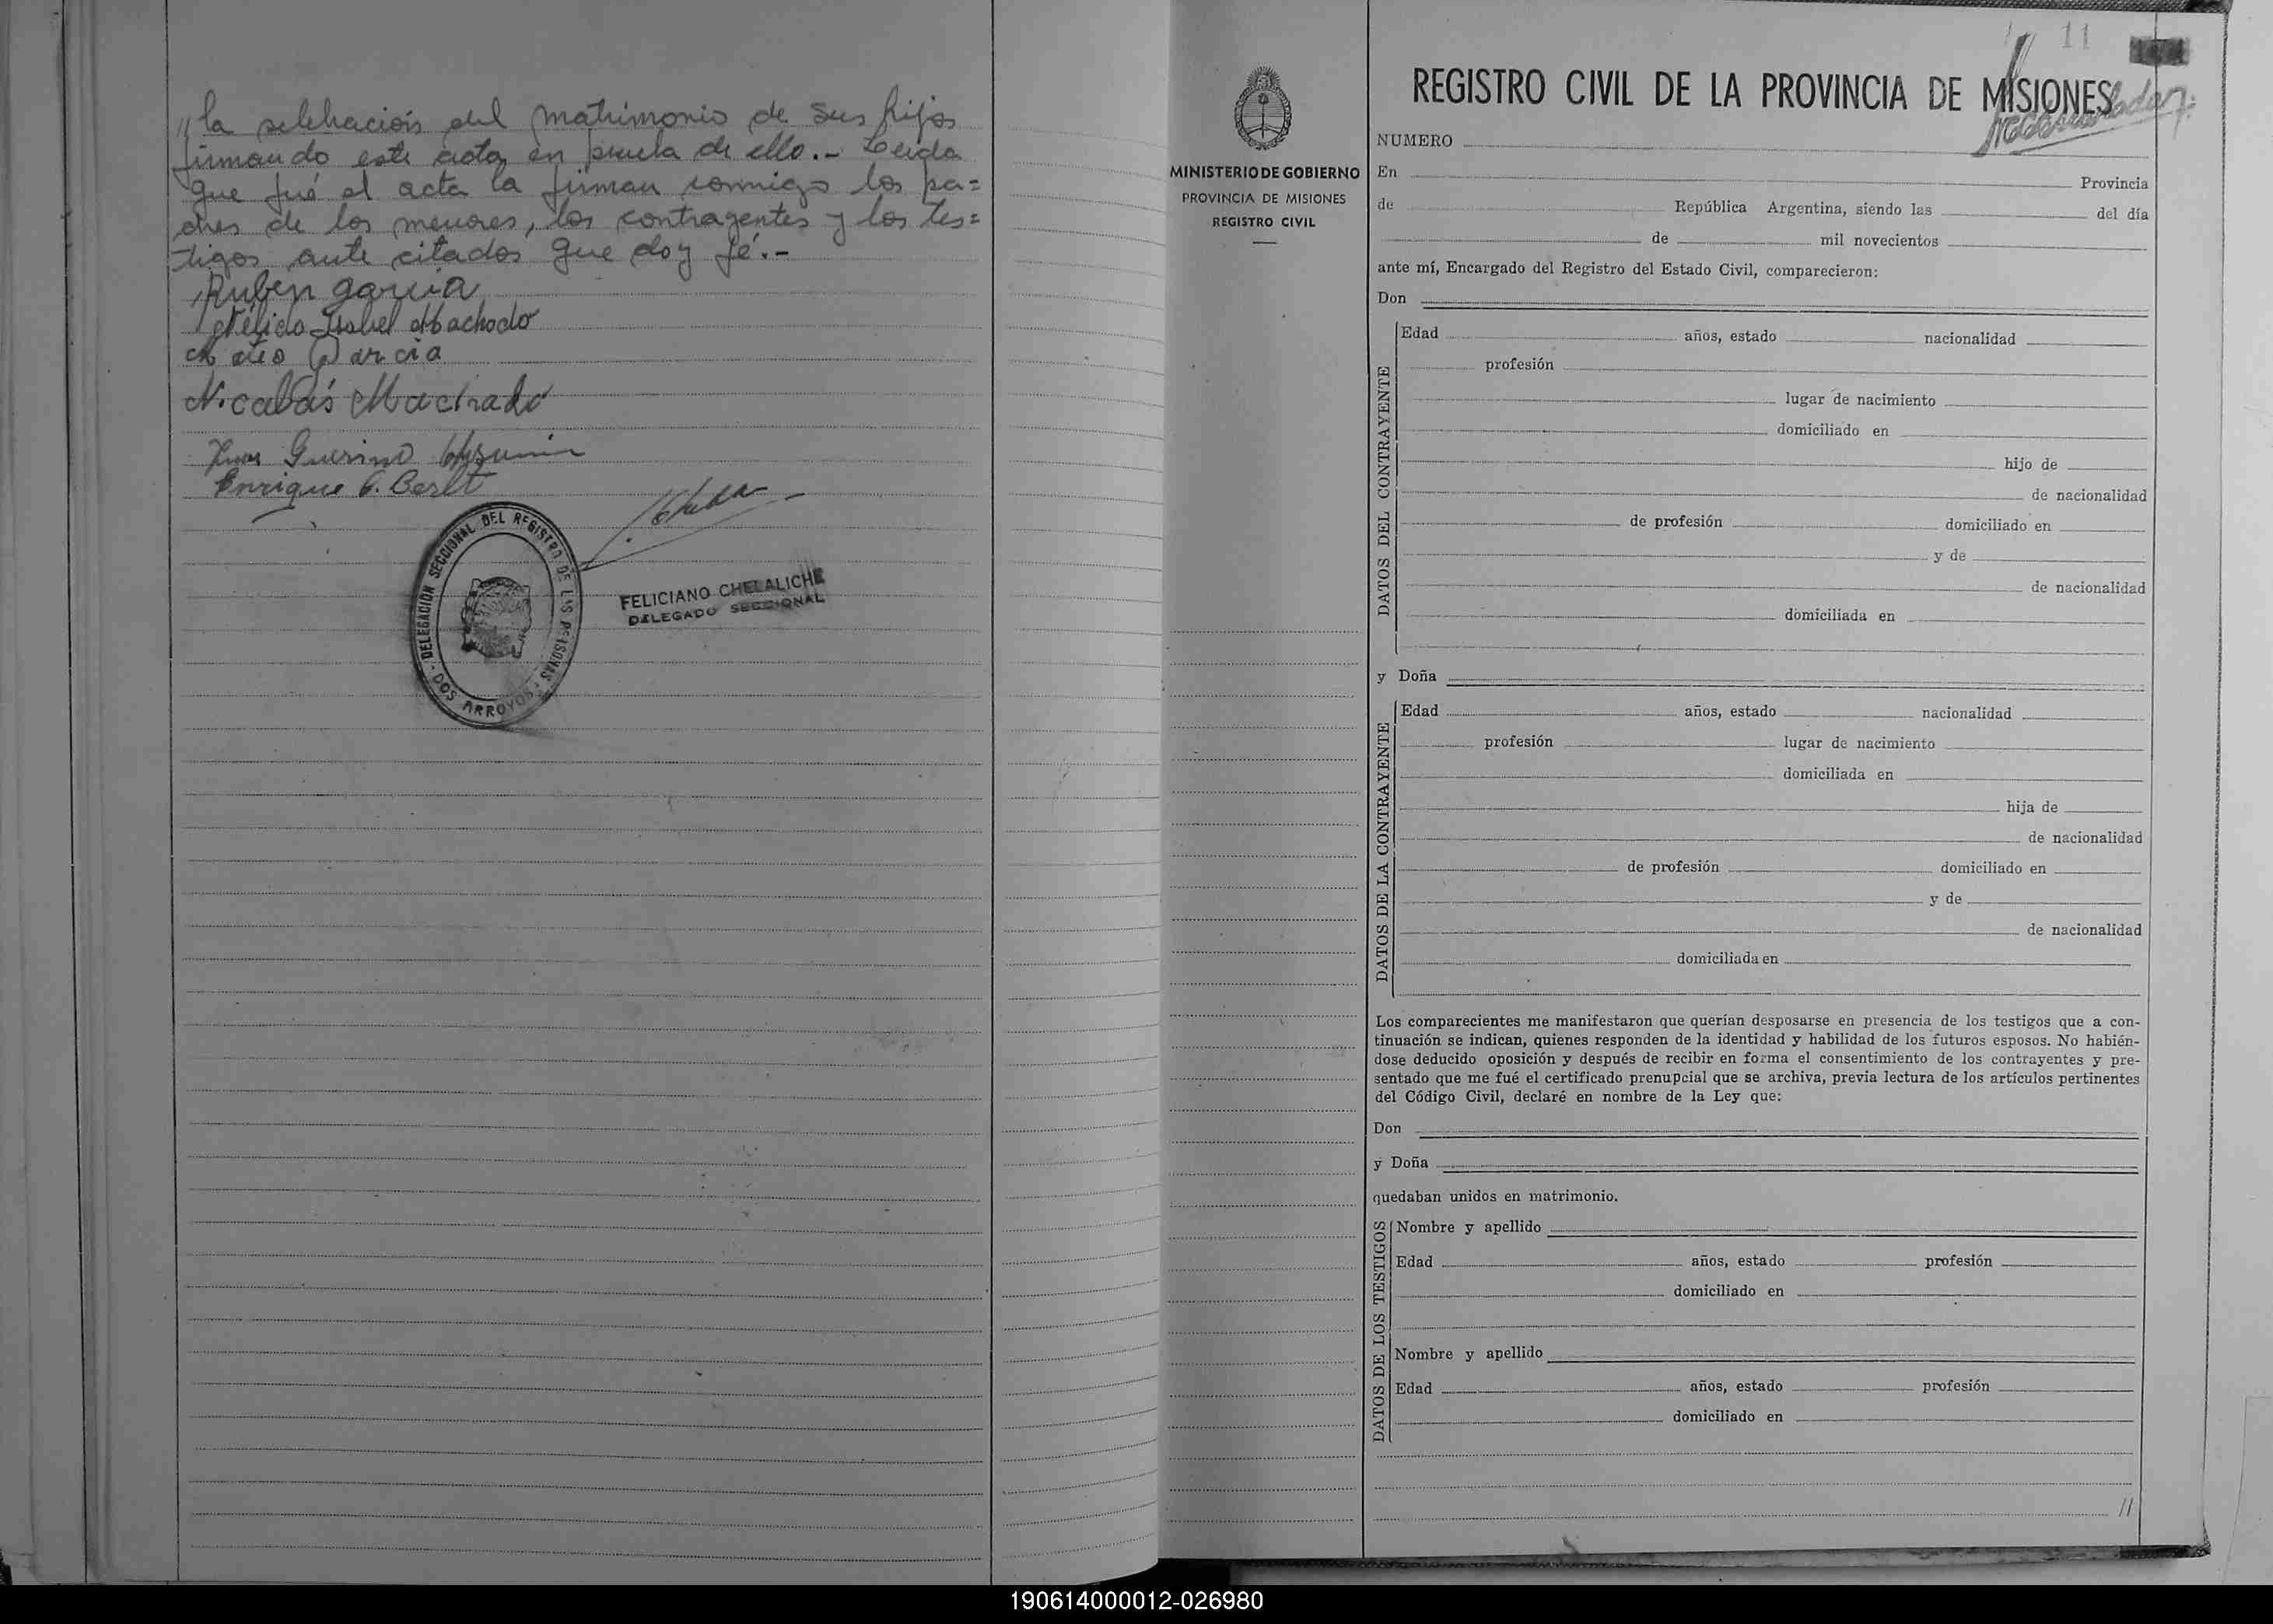 // la celebración del matrimonio de sus hijos
firmando este acta en prueba de ello.- Leída
que fué el acta la firman conmigo los pa=
dres de los menores, los contrayentes y los tes=
tigos ante citados que doy fé.-
Ruben garcia
Nélida Isabel Machado
García
Nicolás Machado
Juan Guerino
Enrique G. Berlt
DELEGACION SECCIONAL DEL REGISTRO DE LAS PERSONAS - DOS ARROYOS -
FELICIANO CHELALICHE
DELEGADO SECCIONAL
MINISTERIO DE GOBIERNO
PROVINCIA DE MISIONES
REGISTRO CIVIL
11
REGISTRO CIVIL DE LA PROVINCIA DE MISIONES
NUMERO
En Provincia
de República Argentina, siendo las del día
de mil novecientos
ante mí, Encargado del Registro del Estado Civil, comparecieron:
Don
DATOS DEL CONTRAYENTE
Edad años, estado nacionalidad
profesión
lugar de nacimiento
domiciliado en
hijo de
de nacionalidad
de profesión domiciliado en
y de
de nacionalidad
domiciliada en
y Doña
DATOS DE LA CONTRAYENTE
Edad años, estado nacionalidad
profesión lugar de nacimiento
domiciliada en
hija de
de nacionalidad
de profesión domiciliado en
y de
de nacionalidad
domiciliada en
Los comparecientes me manifestaron que querían desposarse en presencia de los testigos que a con-
tinuación se indican, quienes responden de la identidad y habilidad de los futuros esposos. No habién-
dose deducido oposición y después de recibir en forma el consentimiento de los contrayentes y pre-
sentado que me fué el certificado prenupcial que se archiva, previa lectura de los artículos pertinentes
del Código Civil, declaré en nombre de la Ley que:
Don
y Doña
quedaban unidos en matrimonio.
DATOS DE LOS TESTIGOS
Nombre y apellido
Edad años, estado profesión
domiciliado en
Nombre y apellido
Edad años, estado profesión
domiciliado en
//
190614000012-026980